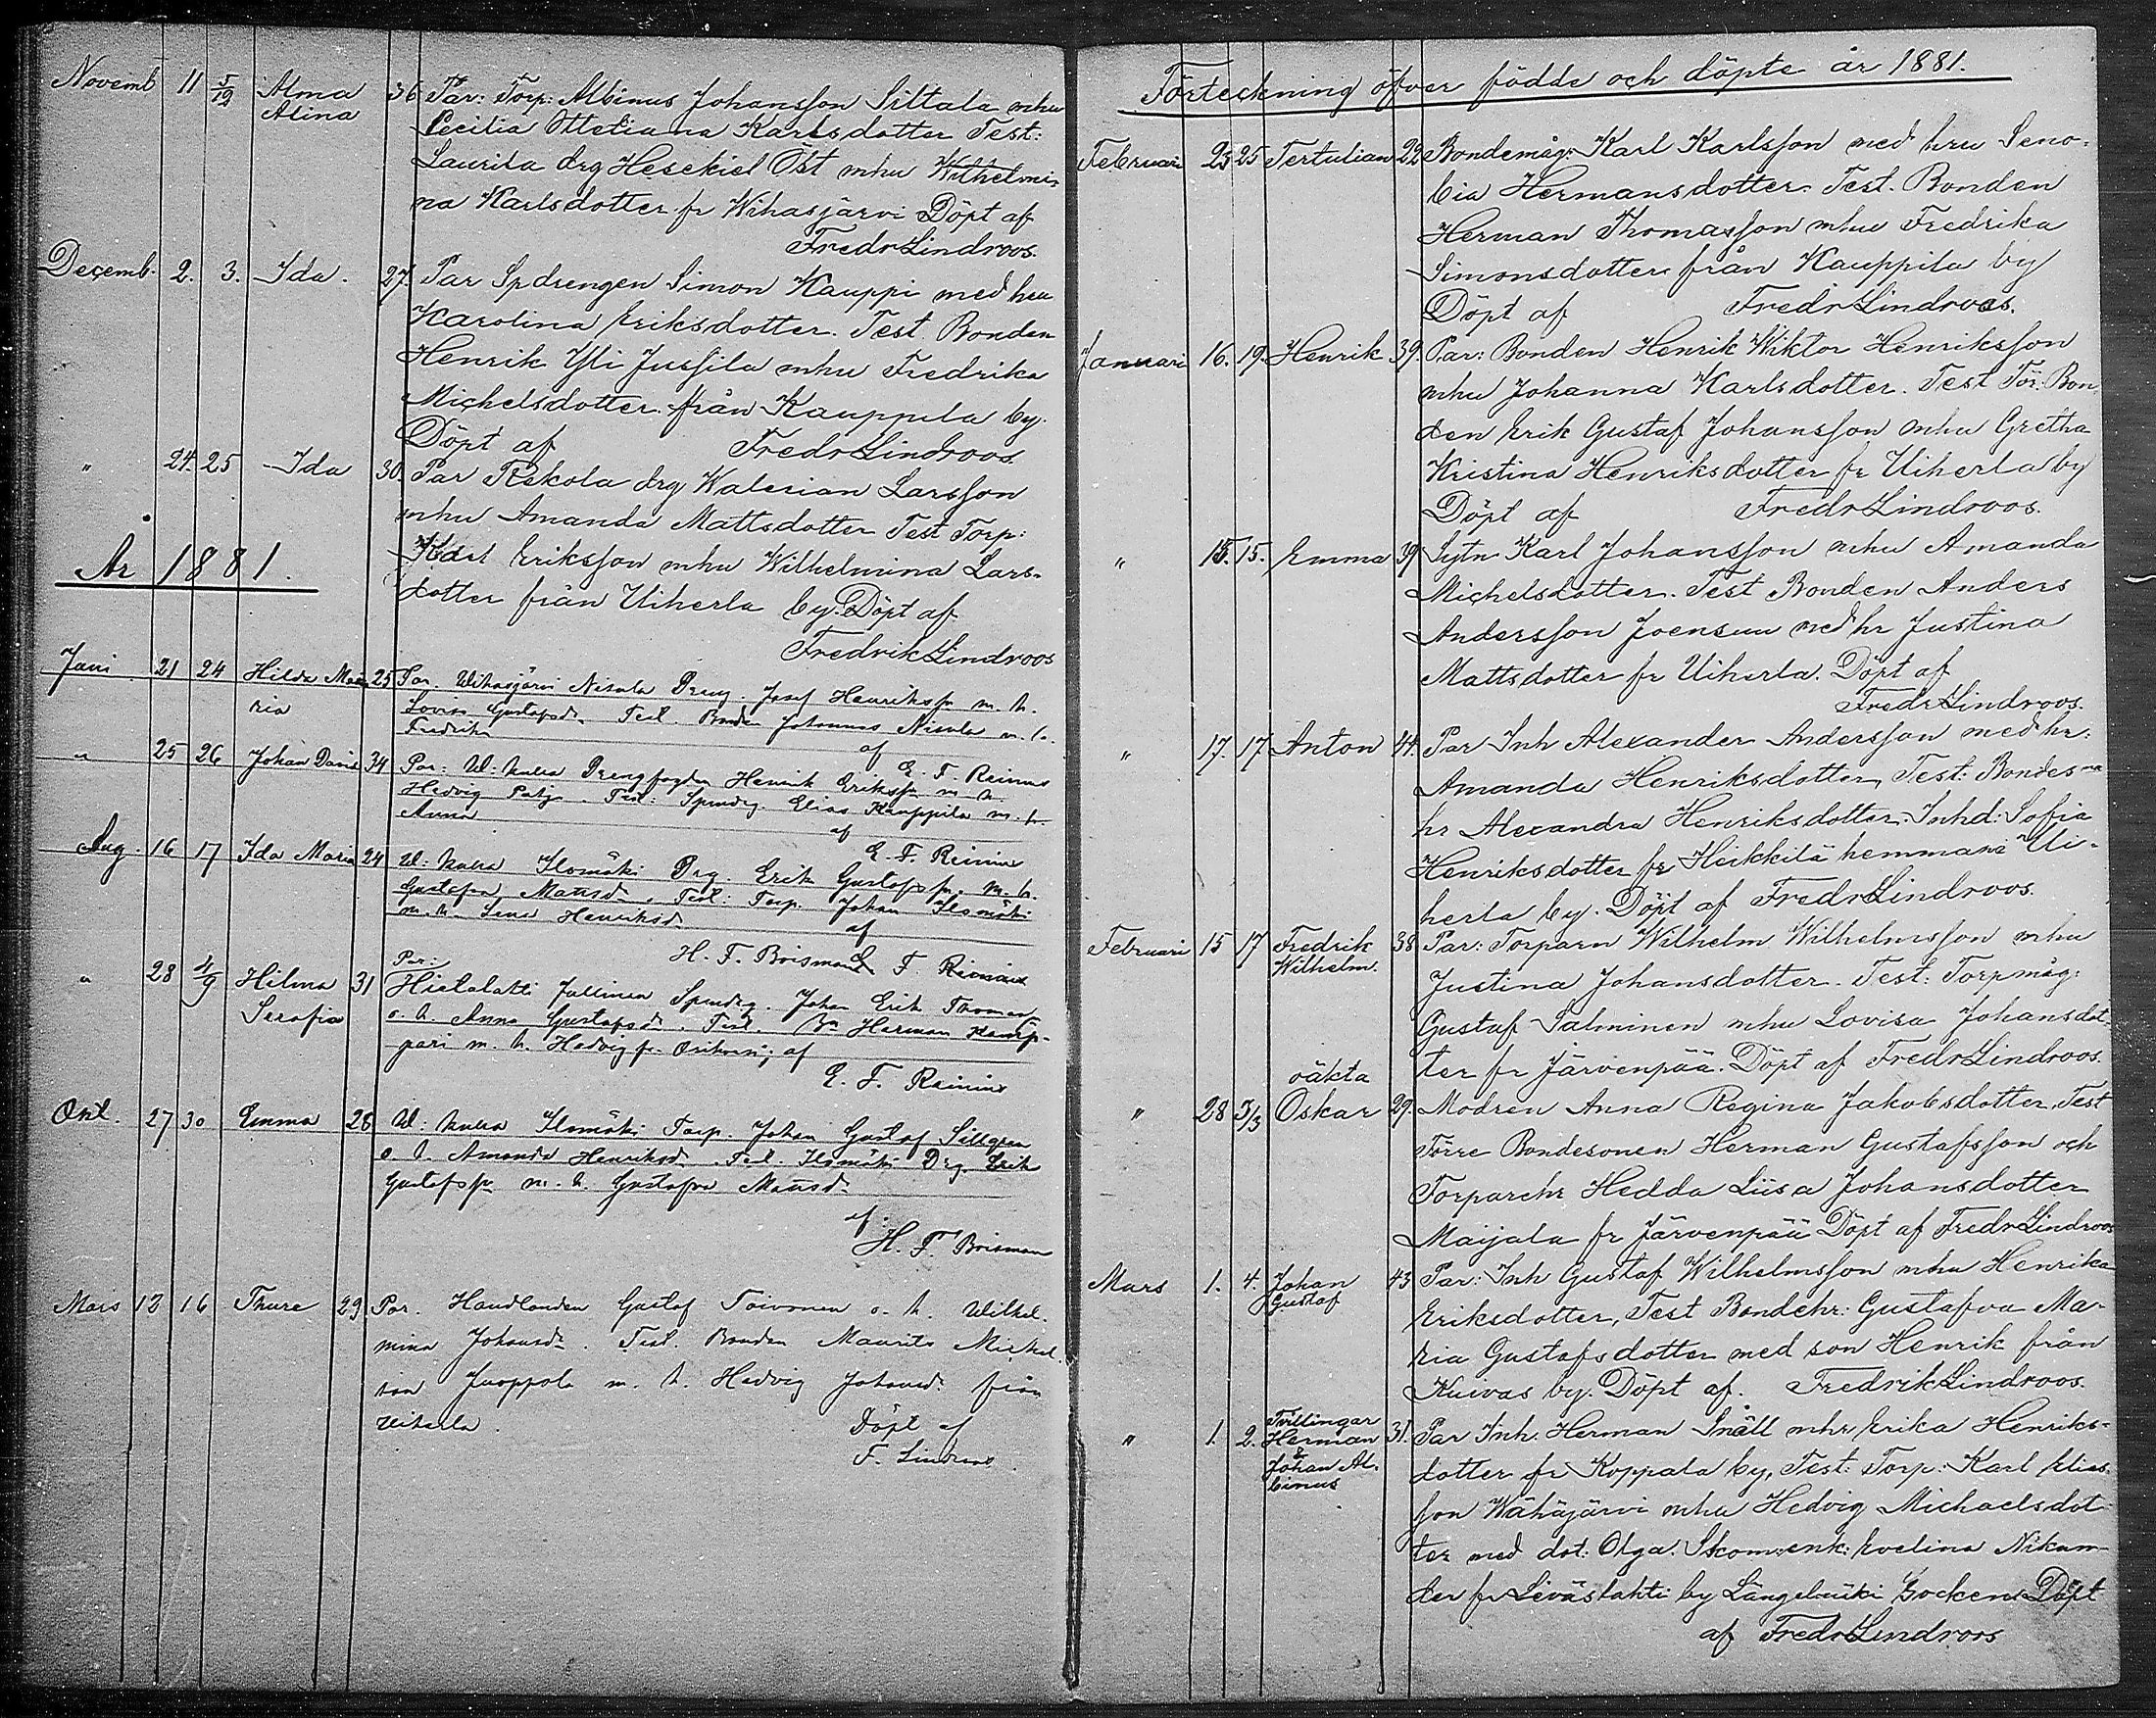 Novemb 11 5/12 Alma 36 Par: Torp: Albinus Johansson Siltala mhu
Alina Cecilia Ottetiana Karlsdotter Test:
Laurila drg Hesekiel Öst mhu Wilhelmi-
na Karlsdotter fr Wihasjärvi Döpt af
Fredr Lindroos.
Decemb. 2. 3. Ida. 27. Par Spdrengen Simon Kauppi med hu
Karolina Eriksdotter. Test Bonden
Henrik Yli Jussila mhu Fredrika
Michelsdotter från Kauppila by.
Döpt af Fredr Lindroos.
" 24. 25 Ida 30. Par Rekola drg Walerian Larsson
mhu Amanda Mattsdotter Test Torp:
Karl Eriksson mhu Wilhelmina Lars-
dotter från Uiherla by. Döpt af
Fredrik Lindroos
År 1881.
Juni 21 24 Hilda Ma- 25 Par. Wihasjärvi Nisula Dreng. Josef Henriksson m. h.
ria Lovisa Gustafsdr Test. Bonden Johannes Nisula m. h.
Fredrika af
E. F. Reinius
" 25 26 Johan David 34 Par: Drengfogden Henrik Eriksson m h
Hedvig Test: Spmdrg. Elias Kauppila m. h.
Anna af
E. F. Reinius
Aug. 16 17 Ida Maria 24 Ilomäki Drg. Erik Gustafsson m. h.
Gustafva Mattsdr. Test: Torp. Johan Ilomäki
m. h. Lena Henriksdr af
H. F. Boisman E. F. Reinius
" 28 4/9 Hilma 31 Par:
Serafia Hietalahti Spmdrg. Johan Erik Thomasson
o. h. Anna Gustafsdr. Test. Bn Herman Kamp-
pari m. h. Hedvig fr. af
E. F. Reinius
Okt. 27 30 Emma 28 Ilomäki Torp. Johan Gustaf Sillgren
o. h. Amanda Henriksdr. Test. Ilomäki Drg. Erik
Gustafsson m. h. Gustafva Mattsdr
af
H. F. Boisman
Mars 13 16 Thure 29. Par. Handlanden Gustaf Toivonen o. h. Wilhel-
mina Johansdr. Test. Bonden Maurits Michel-
son Juoppola m. h. Hedvig Johansdr. från
Uiherla. Döpt af
F. Lindroos
Förteckning öfver födde och döpte år 1881.
Februari 23 25 Tertulian 22 Bondemåg: Karl Karlsson med hru Seno-
bia Hermansdotter. Test. Bonden
Herman Thomasson mhu Fredrika
Simonsdotter från Kauppila by
Döpt af Fredr Lindroos.
Januari 16. 19. Henrik 39. Par: Bonden Henrik Wiktor Henriksson
mhu Johanna Karlsdotter. Test För: Bon-
den Erik Gustaf Johansson mhu Gretha
Kristina Henriksdotter fr Uiherla by
Döpt af Fredr Lindroos.
" 15. 15. Emma 39. Sytn Karl Johansson mhu Amanda
Michelsdotter. Test Bonden Anders
Andersson Joensuu med hr Justina
Mattsdotter fr Uiherla. Döpt af
Fredr Lindroos.
" 17. 17 Anton 44. Par Inh Alexander Andersson med hr:
Amanda Henriksdotter, Test: Bondes
hr Alexandra Henriksdotter. Inhd: Sofia
Henriksdotter fr Heikkilä hemman i Ui-
herla by. Döpt af Fredr Lindroos.
Februari 15 17 Fredrik 38 Par: Torparn Wilhelm Wilhelmsson mhu
Wilhelm. Justina Johansdotter. Test: Torpmåg:
Gustaf Salminen mhu Lovisa Johansdot-
ter fr Järvenpää. Döpt af Fredr Lindroos.
oäkta
" 28 5/3 Oskar 29. Modren Anna Regina Jakobsdotter, Test
Förre Bondesonen Herman Gustafsson och
Torparehr Hedda Liisa Johansdotter
Maijala fr Järvenpää Döpt af Fredr Lindroos
Mars 1. 4. Johan 43 Par: Inh Gustaf Wilhelmsson mhu Henrika
Gustaf Eriksdotter, Test Bondehr: Gustafva Ma-
ria Gustafsdotter med son Henrik från
Kuivas by. Döpt af. Fredrik Lindroos.
Tvillingar
" 1. 2. Herman 31. Par Inh. Herman Snäll mhr Erika Henriks-
& Johan Al- dotter fr Koppala by, Test: Torp: Karl Elias-
binus son Wähäjärvi mhu Hedvig Michaelsdot-
ter med dot: Olga. Skom:enk: Evelina Nikan-
der fr Leväslahti by Längelmäki Socken Döpt
af Fredr Lindroos